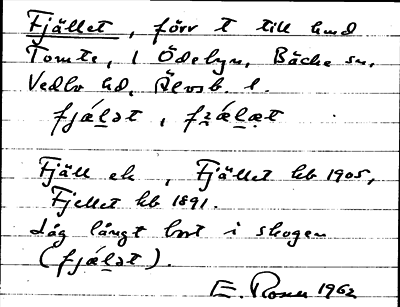 Fjället, förr t till hmd
Tomte, i Ödebyn, Bäcke sn,
Vedbo hd, Älvsb. l.
fjäḷət, fʒäḷæt
Fjäll ek, Fjället kb 1905,
Fjellet kb 1891.
Låg långt bort i skogen
(fjäḷət).
E. Rosen 1962